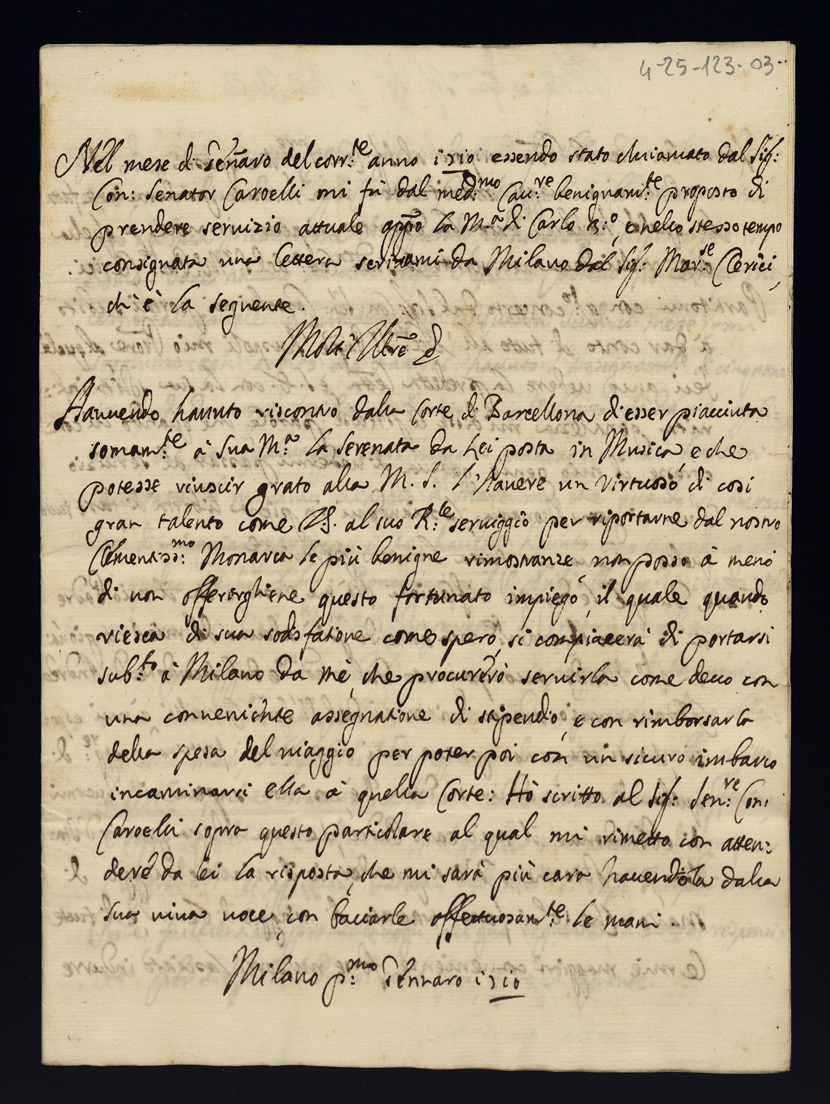 4-25-123-03
Nell mese di Gennaro del corr:te anno 1710 essendo stato chiamato dal Sig:
Con: Senator Caroelli mi fù dal med:mo Cau:re benignam:te proposto di
prendere servizio attuale appro la M:a di Carlo 3:o, e nello stesso tempo
consignata una lettera scrittami da Milano dal Sig: Mar:se Clerici,
ch'è la seguente.
Molt' Illre
Hauuendo hauuto riscontro dalla Corte di Barcellona di esser piacciuta
somam:te à Sua M:a la Serenata da Lei posta in Musica, e che
potesse riuscir grato alla M. S. l'Hauere un Virtuoso di cosi
gran talento come VS. al suo R:le seruiggio per riportarne dal nostro
Clementiss:mo Monarca le più benigne rimostranze non posso à meno
di non offerirghiene questo fortunato impiego il quale quando
riesca di sua sodisfatione come spero, si compiacerà di portarsi
sub:to à Milano da mè, che procurerò seruirla come deuo con
una conueniente assegnatione di stipendio, e con rimborsarla
della spesa del uiaggio per poter poi con un sicuro imbarco
incaminarsi ella à quella Corte: Hò scritto al Sig: Sen:re Con:
Caroelli sopra questo particolare al qual mi rimetto con atten:
dere da lei la risposta, che mi sarà più cara hauendola dalla
sua uiua uoce, con baciarle affettuosam:te le mani.
Milano p:mo Gennaro 1710